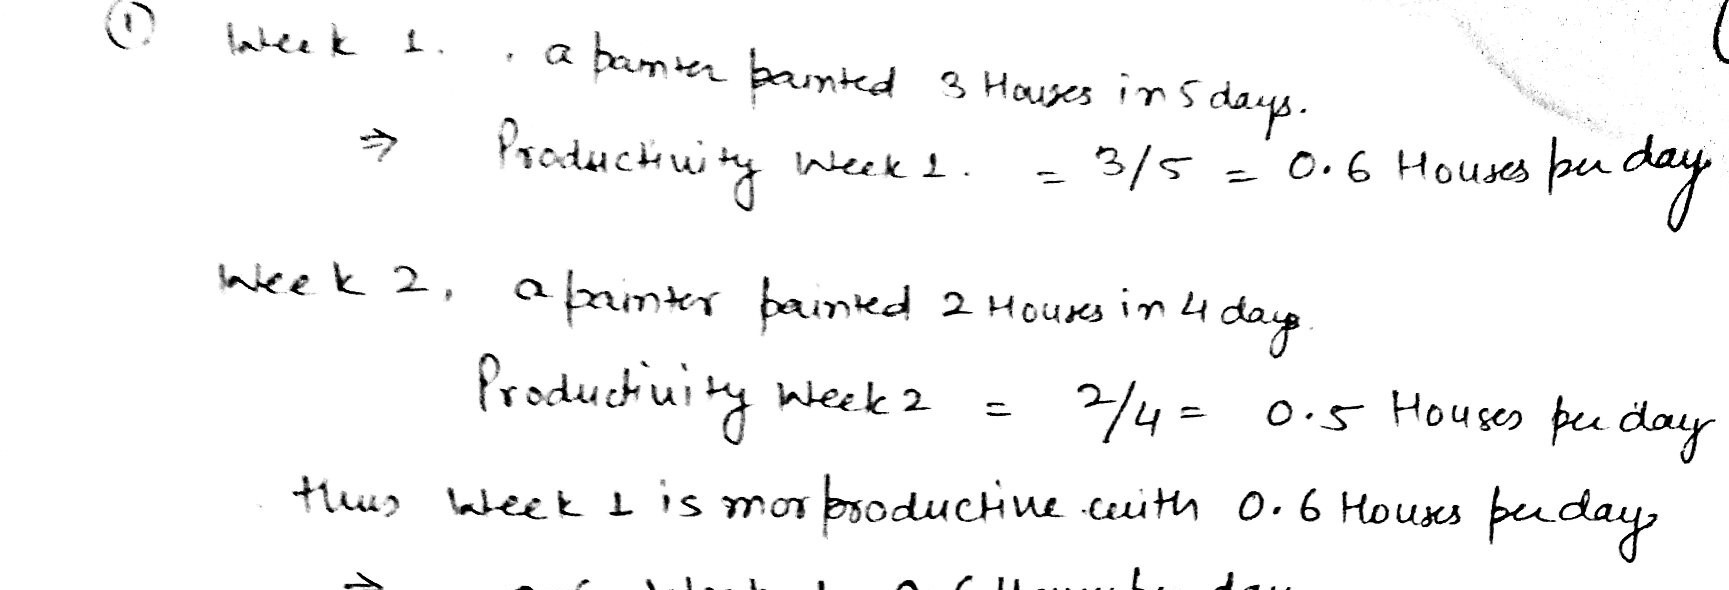 ① Week 1. . a painter painted 3 Houses in 5 days.
⇒ Productivity Week 1. = 3/5 = 0.6 Houses per day
Week 2, a painter painted 2 Houses in 4 days.
Productivity Week 2 = 2/4 = 0.5 Houses per day
thus Week 1 is mor productive with 0.6 Houses per day,